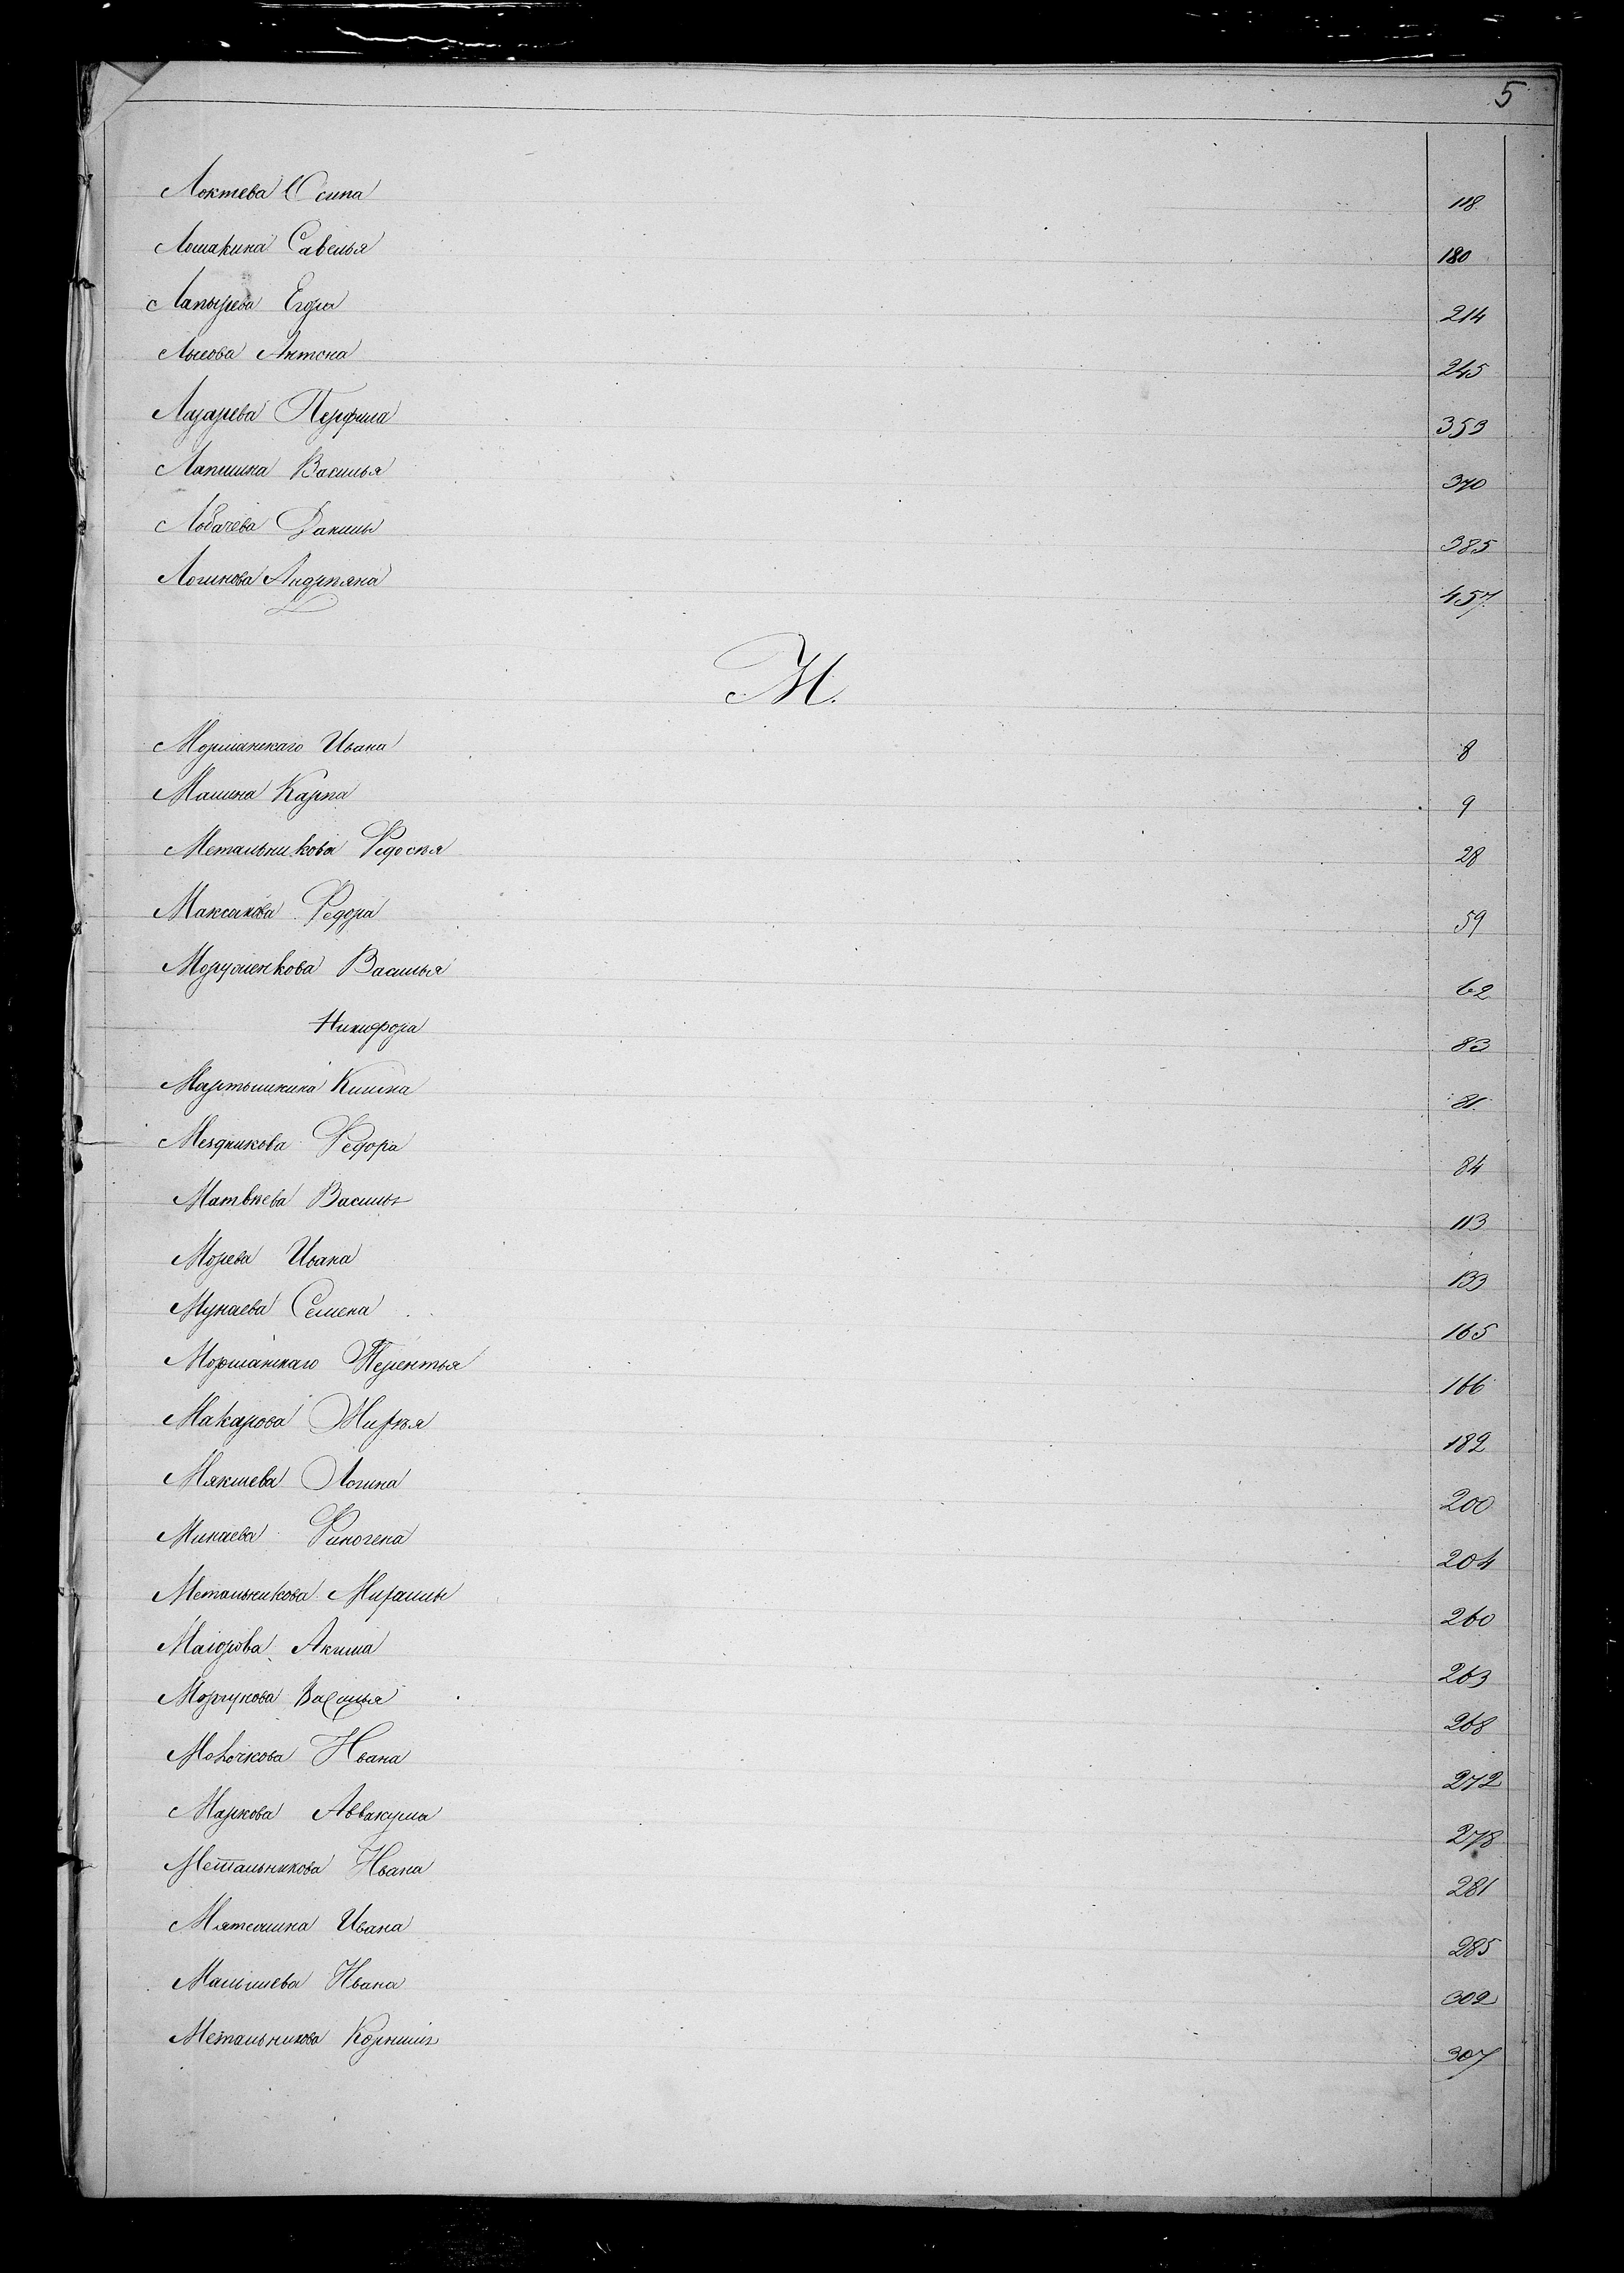 5
Локтева Осипа 118
Лошакина Савелья 180
Лапырева Егора 214
Лысова Антона 245
Лазарева Перфила 353
Лапшина Василья 370
Лобачева Данилы 385
Логинова Андрияна 457
М.
Моршанскаго Ивана 8
Машина Карпа 9
Метальникова Федосѣя 28
Максакова Федора 59
Василья 62
Никифора 83
Мартышкина 81
Мездрикова Федора 84
Матвѣева Василья 113
Морева Ивана 133
Мунаева Семена 165
Моршанскаго Терентья 166
Макарова 182
Мякшева Логина 200
Минаева Финогена 204
Метальникова 260
Маіорова Акима 263
Моргунова Василья 268
Ивана 272
Маркова Аввакума 278
Метальникова Ивана 281
Ивана 285
Малышева Ивана 302
Метальникова Корнила 307